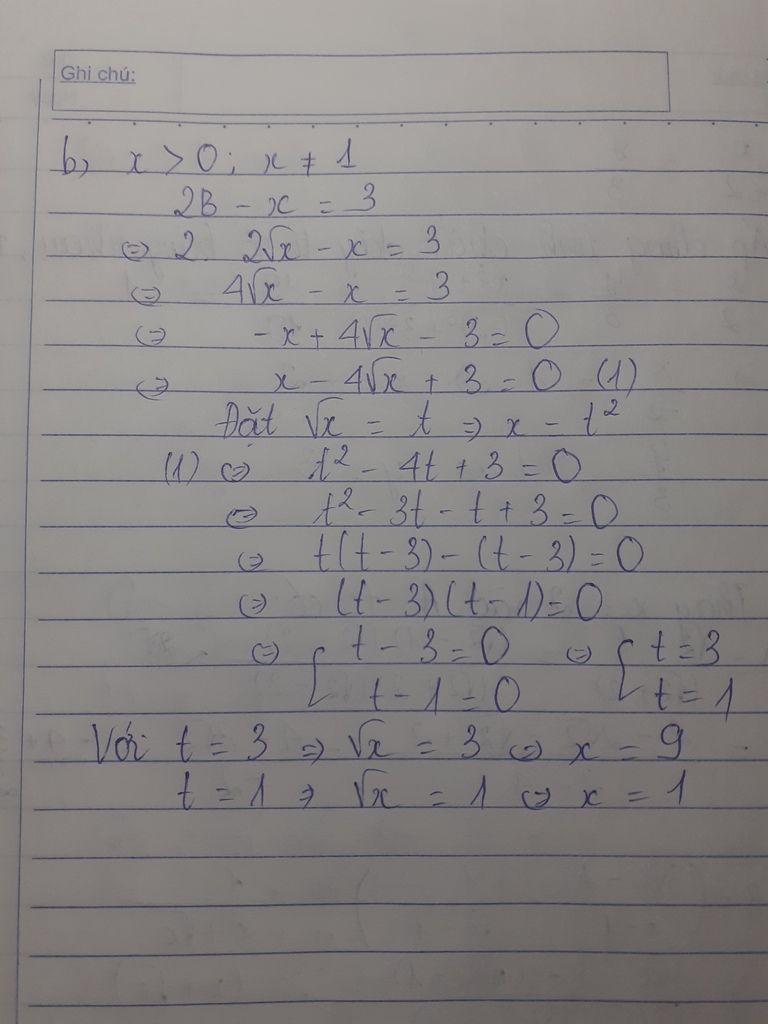 Ghi chú:
b, x > 0; x ≠ 1
2B - x = 3
⇔ 2 2√x - x = 3
⇔ 4√x - x = 3
⇔ -x + 4√x - 3 = 0
⇔ x - 4√x + 3 = 0 (1)
Đặt √x = t ⇒ x = t²
(1) ⇔ t² - 4t + 3 = 0
⇔ t² - 3t - t + 3 = 0
⇔ t(t - 3) - (t - 3) = 0
⇔ (t - 3)(t - 1) = 0
⇔ [ t - 3 = 0 ⇔ [ t = 3
t - 1 = 0 t = 1
Với t = 3 ⇒ √x = 3 ⇔ x = 9
t = 1 ⇒ √x = 1 ⇔ x = 1